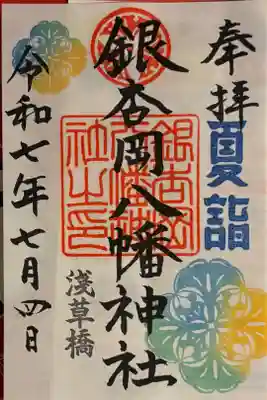 奉拝
夏詣
銀杏岡八幡神社
銀杏岡八幡神社之印
浅草橋
令和七年七月四日